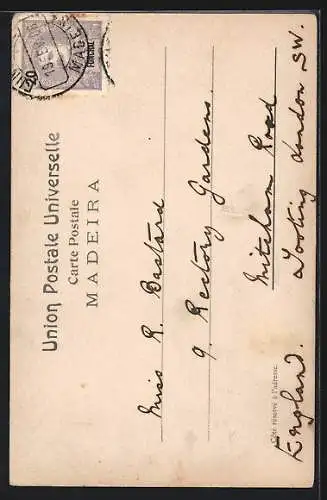 Union Postale Universelle
Carte Postale
MADEIRA
FUNCHAL
Miss R. Bastard
9. Rectory Gardens.
Mitcham Road
Tooting London SW.
England.
Côté réservé à l'adresse.